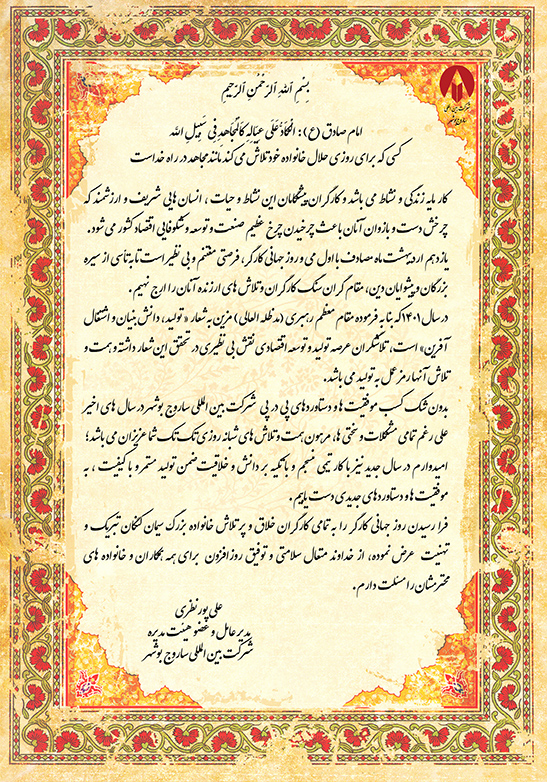 شرکت بین المللی
ساروج بوشهر
بِسْمِ اللهِ الرَّحْمٰنِ الرَّحِیْمِ
امام صادق (ع): اَلْکادُّ عَلَی عِیَالِهِ کَالْمُجَاهِدِ فِی سَبِیلِ الله
کسی که برای روزی حلال خانواده خود تلاش می کند مانند مجاهد در راه خداست
کار مایه زندگی و نشاط می باشد و کارگران پیشگامان این نشاط و حیات ، انسان هایی شریف و ارزشمند که
چرخش دست و بازوان آنان باعث چرخیدن چرخ عظیم صنعت و توسعه و شکوفایی اقتصاد کشور می شود.
یازدهم اردیبهشت ماه مصادف با اول می و روز جهانی کارگر، فرصتی مغتنم و بی نظیر است تا به تأسی از سیره
بزرگان و پیشوایان دین، مقام گران سنگ کارگران و تلاش های ارزنده آنان را ارج نهیم.
در سال ۱۴۰۱ که بنا به فرموده مقام معظم رهبری (مدظله العالی) مزین به شعار « تولید، دانش بنیان و اشتغال
آفرین» است، تلاشگران عرصه تولید و توسعه اقتصادی نقش بی نظیری در تحقق این شعار داشته و همت و
تلاش آنها رمز عمل به تولید می باشد.
بدون شک کسب موفقیت ها و دستاوردهای پی در پی شرکت بین المللی ساروج بوشهر در سال های اخیر
علی رغم تمامی مشکلات و سختی ها، مرهون همت و تلاش های شبانه روزی تک تک شما عزیزان می باشد؛
امیدوارم در سال جدید نیز با کار تیمی منسجم و با تکیه بر دانش و خلاقیت ضمن تولید مستمر و با کیفیت ، به
موفقیت ها و دستاوردهای جدیدی دست یابیم .
فرا رسیدن روز جهانی کارگر را به تمامی کارگران خلاق و پر تلاش خانواده بزرگ سیمان کنگان تبریک و
تهنیت عرض نموده، از خداوند متعال سلامتی و توفیق روز افزون برای همه همکاران و خانواده های
محترمشان را مسئلت دارم.
علی پورنظری
مدیرعامل و عضو هیئت مدیره
شرکت بین المللی ساروج بوشهر